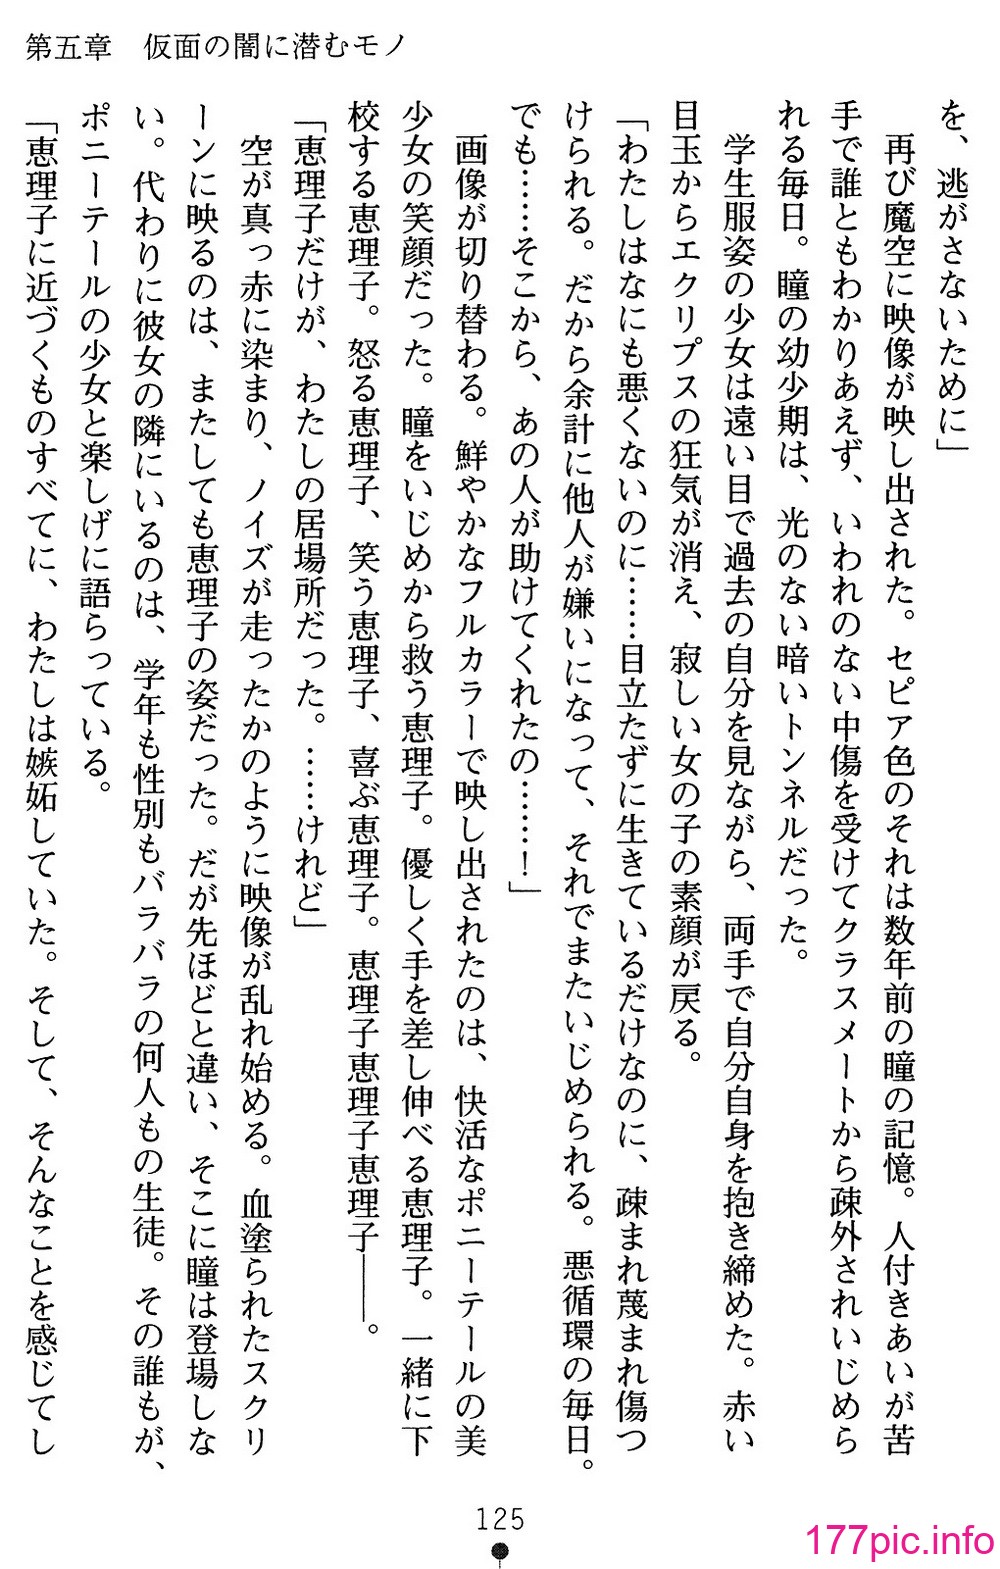 第五章　仮面の闇に潜むモノ
を、逃がさないために」
　再び魔空に映像が映し出された。セピア色のそれは数年前の瞳の記憶。人付きあいが苦
手で誰ともわかりあえず、いわれのない中傷を受けてクラスメートから疎外されいじめら
れる毎日。瞳の幼少期は、光のない暗いトンネルだった。
　学生服姿の少女は遠い目で過去の自分を見ながら、両手で自分自身を抱き締めた。赤い
目玉からエクリプスの狂気が消え、寂しい女の子の素顔が戻る。
「わたしはなにも悪くないのに……目立たずに生きているだけなのに、疎まれ蔑まれ傷つ
けられる。だから余計に他人が嫌いになって、それでまたいじめられる。悪循環の毎日。
でも……そこから、あの人が助けてくれたの……！」
　画像が切り替わる。鮮やかなフルカラーで映し出されたのは、快活なポニーテールの美
少女の笑顔だった。瞳をいじめから救う恵理子。優しく手を差し伸べる恵理子。一緒に下
校する恵理子。怒る恵理子、笑う恵理子、喜ぶ恵理子。恵理子恵理子恵理子――。
「恵理子だけが、わたしの居場所だった。……けれど」
　空が真っ赤に染まり、ノイズが走ったかのように映像が乱れ始める。血塗られたスクリ
ーンに映るのは、またしても恵理子の姿だった。だが先ほどと違い、そこに瞳は登場しな
い。代わりに彼女の隣にいるのは、学年も性別もバラバラの何人もの生徒。その誰もが、
ポニーテールの少女と楽しげに語らっている。
「恵理子に近づくものすべてに、わたしは嫉妬していた。そして、そんなことを感じてし
125
177pic.info